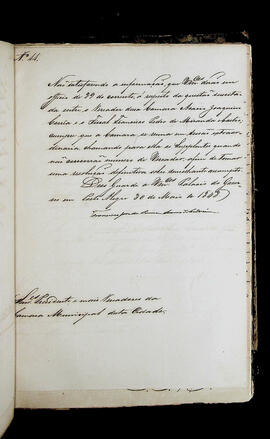 Nº 44.
Não satisfazendo a informação, que Vm.ces derão em
officio de 29 do corrente, á respeito da questão suscita
da entre o Vereador dessa Camara Manoel Joaquim
e o Fiscal Francisco Pedro de Miranda e Castro,
cumpre que a Camara se reuna em sessão extraor
dinaria chamando para ella os Supplentes quando
não concorrão numero de Vereadores, afim de tomar
uma resolução definitiva sobre semelhante assumpto.
Deos Guarde a Vm.ces Palacio do Gover
no em Porto Alegre 30 de Maio de 1845
Snr.es Presidente e mais Vereadores da
Camara Municipal desta Cidade.